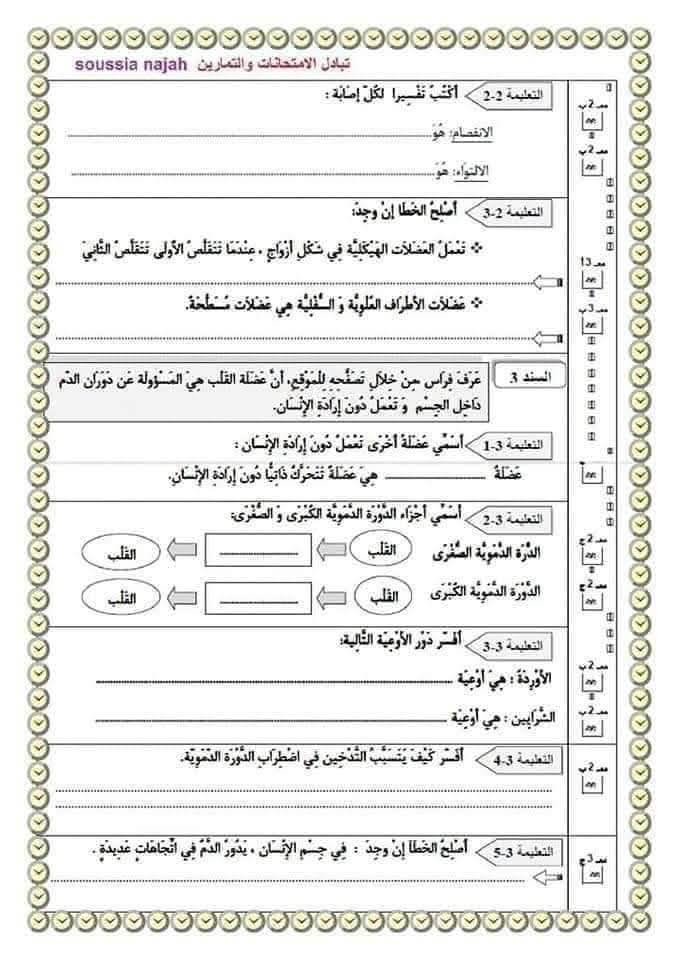 تبادل الامتحانات والتمارين soussia najah
التعليمة 2-2 أَكْتُبُ تَفْسِيرا لكُلّ إصَابَة :
معـ 2 ب
الانفصام: هُوَ
معـ 2 ب
الالتواء: هُوَ
التعليمة 2-3 أُصْلِحُ الخَطَأ إنْ وجِدَ:
تَعْمَلُ العَضَلاَت الهَيْكَلِيَّة فِي شَكْلِ أزْوَاجٍ ، عِنْدَمَا تَتَقَلَّصُ الأولَى تَتَقَلَّصُ الثَّانِيَ
معـ 3 ب
عَضَلاَت الأطْرَاف العُلْوِيَّة وَ السُّفْلِيَّة هِي عَضَلاَت مُسَطَّحَةٌ.
السند 3
عَرَفَ فِرَاس ،مِنْ خِلاَلِ تَصَفُّحِهِ لِلمَوْقِعِ، أنَّ عَضَلَة القَلْب هِيَ المَسْؤُولَة عَن دَوَرَان الدَّم
دَاخِل الجِسْم وَ تَعْمَلُ دُونَ إرَادَةِ الإنْسَان.
التعليمة 3-1 أُسَمِّي عَضَلَةً أخْرَى تَعْمَلُ دُونَ إرَادَةِ الإنْسَان :
عَضَلَةُ هِيَ عَضَلَةٌ تَتَحَرَّكُ ذَاتِيًّا دُونَ إرَادَةِ الإنْسَان.
التعليمة 3-2 أُسَمِّي أجْزَاء الدَّوْرَة الدَّمَوِيَّة الكُبْرَى وَ الصُّغْرَى:
معـ 2 ج
الدَّرَة الدَّمَوِيَّة الصُّغْرَى القَلْب القَلْب
معـ 2 ج
الدَّوْرَة الدَّمَوِيَّة الكُبْرَى القَلْب القَلْب
التعليمة 3-3 أفَسِّر دَوْرَ الأوْعِيَة التَّالِية:
معـ 2 ب
الأوْرِدَة : هِيَ أوْعِيَة
معـ 2 ب
الشَّرَايِين : هِيَ أوْعِيَة
التعليمة 3-4 أفَسِّر كَيْفَ يَتَسَبَّبُ التَّدْخِين فِي اضْطِرَاب الدَّوْرَة الدَّمَوِيَّة.
معـ 2 ب
التعليمة 3-5 أُصْلِحُ الخَطَأ إنْ وجِدَ : فِي جِسْمِ الإنْسَان ، يَدُورُ الدَّمُ فِي اتِّجَاهَاتٍ عَدِيدَةٍ .
معـ 3 ج